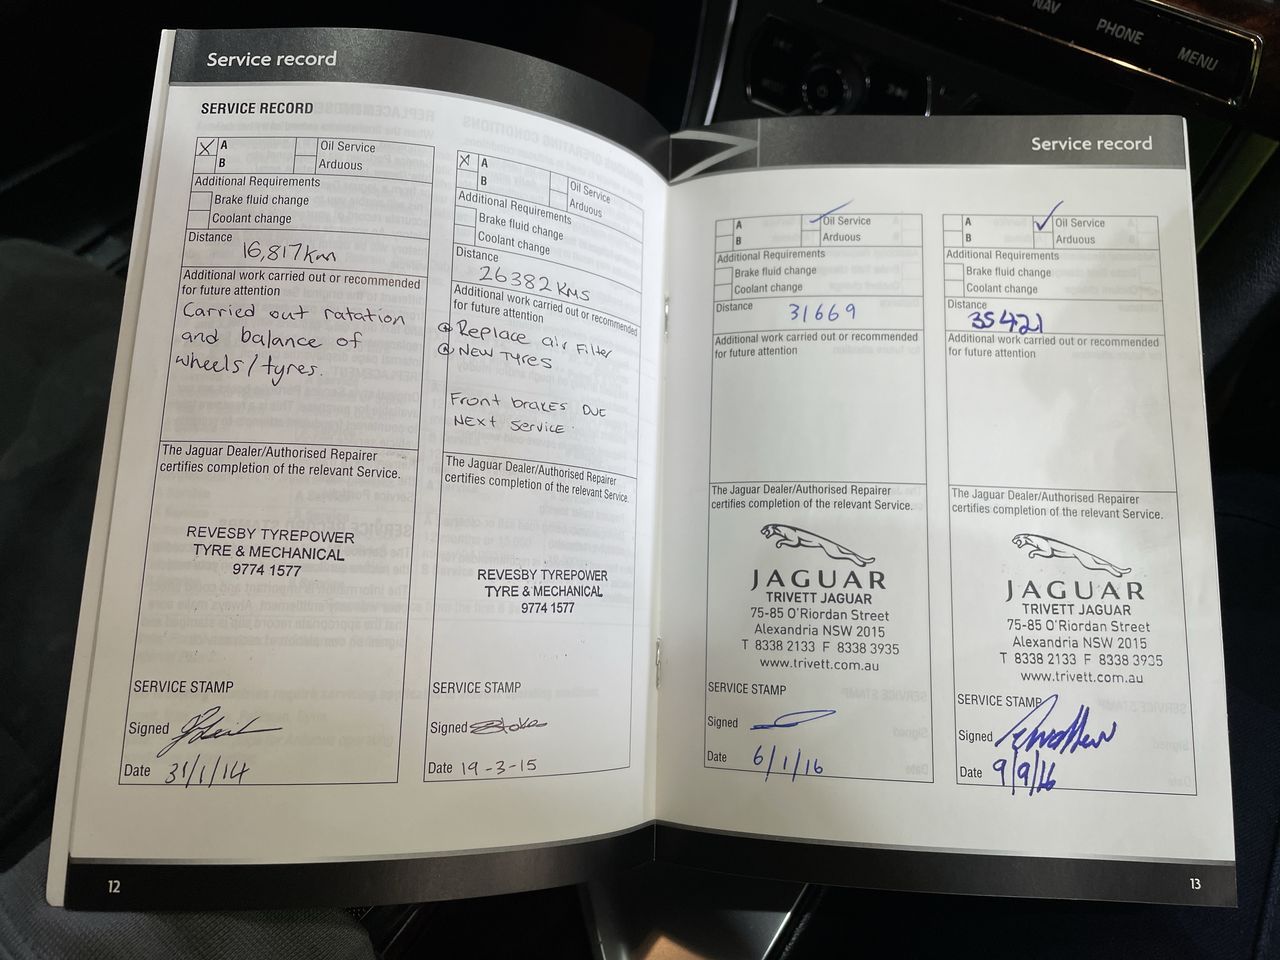 NAV
PHONE
MENU
Service record
SERVICE RECORD
A
Oil Service
B
Arduous
Additional Requirements
Brake fluid change
Coolant change
Distance
16,817km
Additional work carried out or recommended
for future attention
Carried out ratation
and balance of
wheels/tyres.
The Jaguar Dealer/Authorised Repairer
certifies completion of the relevant Service.
REVESBY TYREPOWER
TYRE & MECHANICAL
9774 1577
SERVICE STAMP
Signed
Date 31/1/14
A
Oil Service
B
Arduous
Additional Requirements
Brake fluid change
Coolant change
Distance
26382 KMS
Additional work carried out or recommended
for future attention
Replace air Filter
NEW TYRES
Front brakes DUE
NEXT Service.
The Jaguar Dealer/Authorised Repairer
certifies completion of the relevant Service.
REVESBY TYREPOWER
TYRE & MECHANICAL
9774 1577
SERVICE STAMP
Signed
Date 19-3-15
12
Service record
A
Oil Service
B
Arduous
Additional Requirements
Brake fluid change
Coolant change
Distance
31669
Additional work carried out or recommended
for future attention
The Jaguar Dealer/Authorised Repairer
certifies completion of the relevant Service.
JAGUAR
TRIVETT JAGUAR
75-85 O'Riordan Street
Alexandria NSW 2015
T 8338 2133 F 8338 3935
www.trivett.com.au
SERVICE STAMP
Signed
Date 6/1/16
A
Oil Service
B
Arduous
Additional Requirements
Brake fluid change
Coolant change
Distance
35421
Additional work carried out or recommended
for future attention
The Jaguar Dealer/Authorised Repairer
certifies completion of the relevant Service.
JAGUAR
TRIVETT JAGUAR
75-85 O'Riordan Street
Alexandria NSW 2015
T 8338 2133 F 8338 3935
www.trivett.com.au
SERVICE STAMP
Signed
Date 9/9/16
13